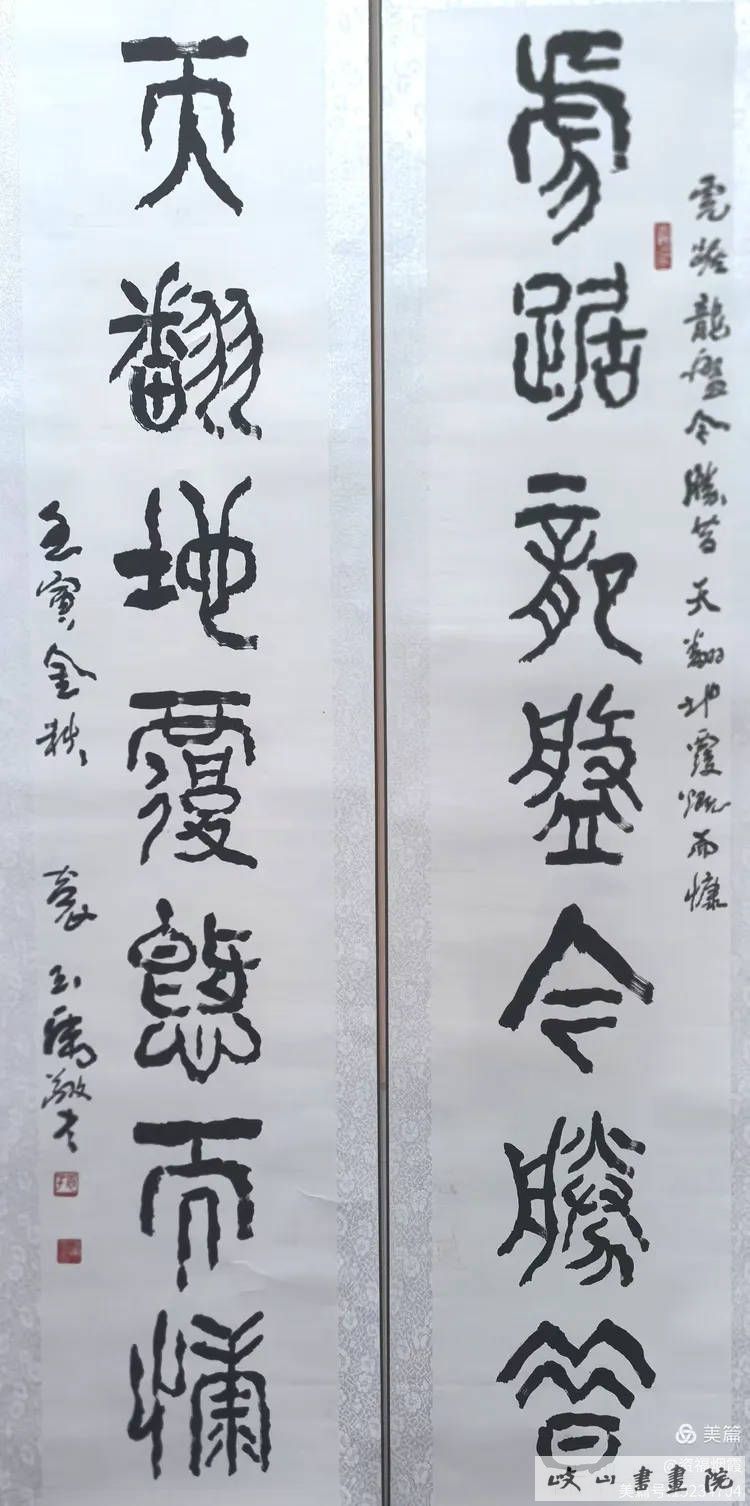 虎踞龍盤今勝昔
虎踞龍盤今勝昔天翻地覆慨而慷
天翻地覆慨而慷
壬寅金秋
袁玉騰敬書
美篇
岐山書畫院